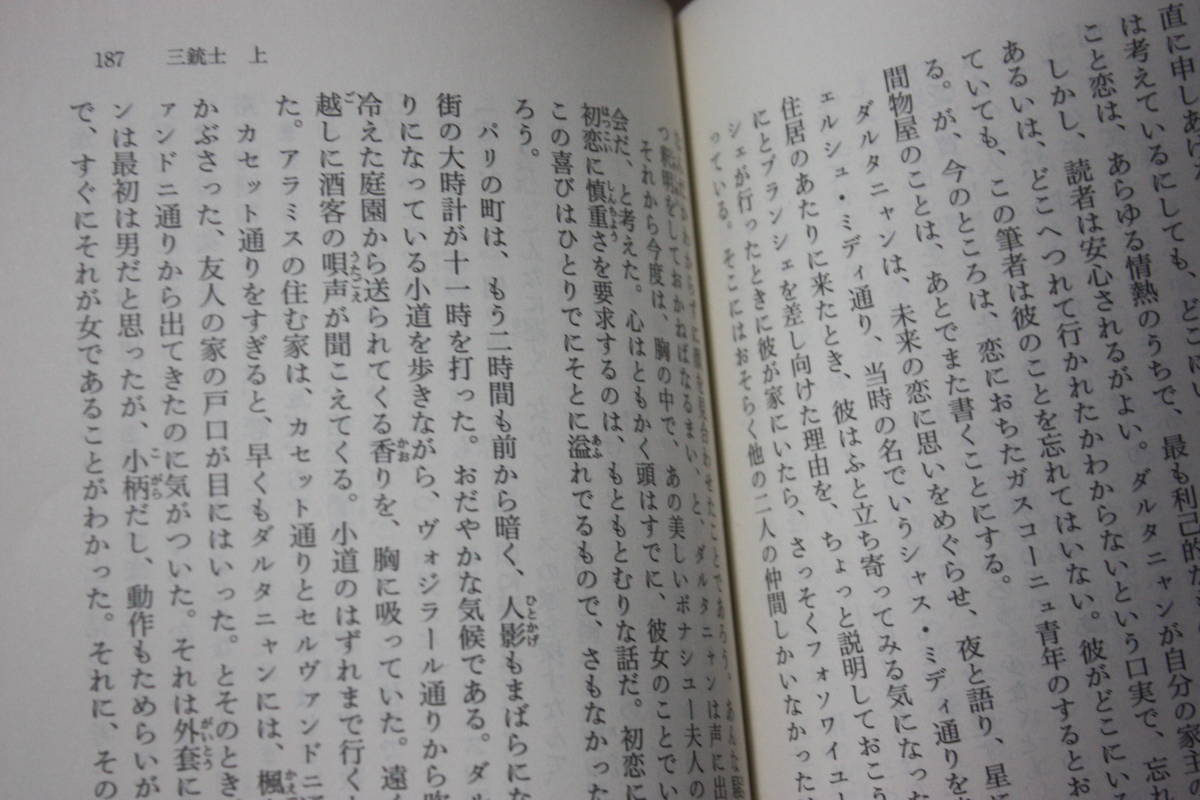 直に申しあげ
は考えているにしても、どこに
こと恋は、あらゆる情熱のうちで、最も利己的な
しかし、読者は安心されるがよい。ダルタニャンが自分の家主の
あるいは、どこへつれて行かれたかわからないという口実で、忘れ
ていても、この筆者は彼のことを忘れてはいない。彼がどこにい
る。が、今のところは、恋におちたガスコーニュ青年のするとお
間物屋のことは、あとでまた書くことにする。
ダルタニャンは、未来の恋に思いをめぐらせ、夜と語り、星に
ェルシュ・ミディ通り、当時の名でいうシャス・ミディ通りを
住居のあたりに来たとき、彼はふと立ち寄ってみる気になっ
にとプランシェを差し向けた理由を、ちょっと説明しておこう
シェが行ったときに彼が家にいたら、さっそくフォソワイユー
っている。そこにはおそらく他の二人の仲間しかいなかった
わからずに顔を見合わせたことであろう。あんな騒
っ釈明をしておかねばなるまい、と、ダルタニャンは声に出
187 三銃士 上
それから今度は、胸の中で、あの美しいボナシュー夫人の
会だ、と考えた。心はともかく頭はすでに、彼女のことでい
初恋に慎重さを要求するのは、もともとむりな話だ。初恋に
この喜びはひとりでにそとに溢れでるもので、さもなかった
ろう。
パリの町は、もう二時間も前から暗く、人影もまばらにな
街の大時計が十一時を打った。おだやかな気候である。ダル
りになっている小道を歩きながら、ヴォジラール通りから
冷えた庭園から送られてくる香りを、胸に吸っていた。遠く
越しに酒客の唄声が聞こえてくる。小道のはずれまで行くと
た。アラミスの住む家は、カセット通りとセルヴァンドニ
カセット通りをすぎると、早くもダルタニャンには、楓
かぶさった、友人の家の戸口が目にはいった。とそのとき
ァンドニ通りから出てきたのに気がついた。それは外套に
ンは最初は男だと思ったが、小柄だし、動作もためらいが
で、すぐにそれが女であることがわかった。それに、その